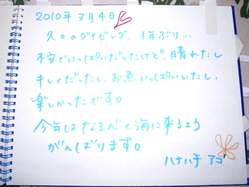 2010年3月4日
久々のダイビング、1年ぶり…
不安でいっぱいだったけど、晴れたし
キレイだったし、お魚いっぱいいたし、
楽しかったです。
今年はなるべく海に来るよう
がんばります。
ハナハテ アゴ